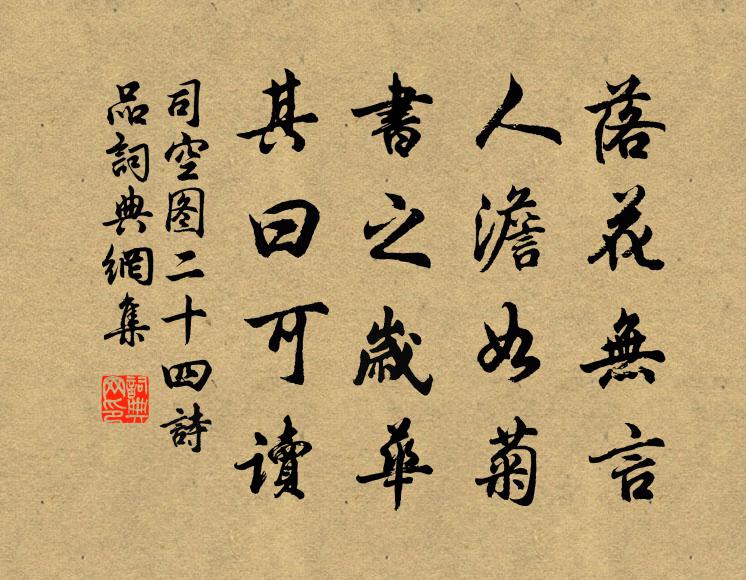 落花無言
人澹如菊
書之歲華
其曰可讀
司空图二十四詩
品詞典網集
詞典
网印